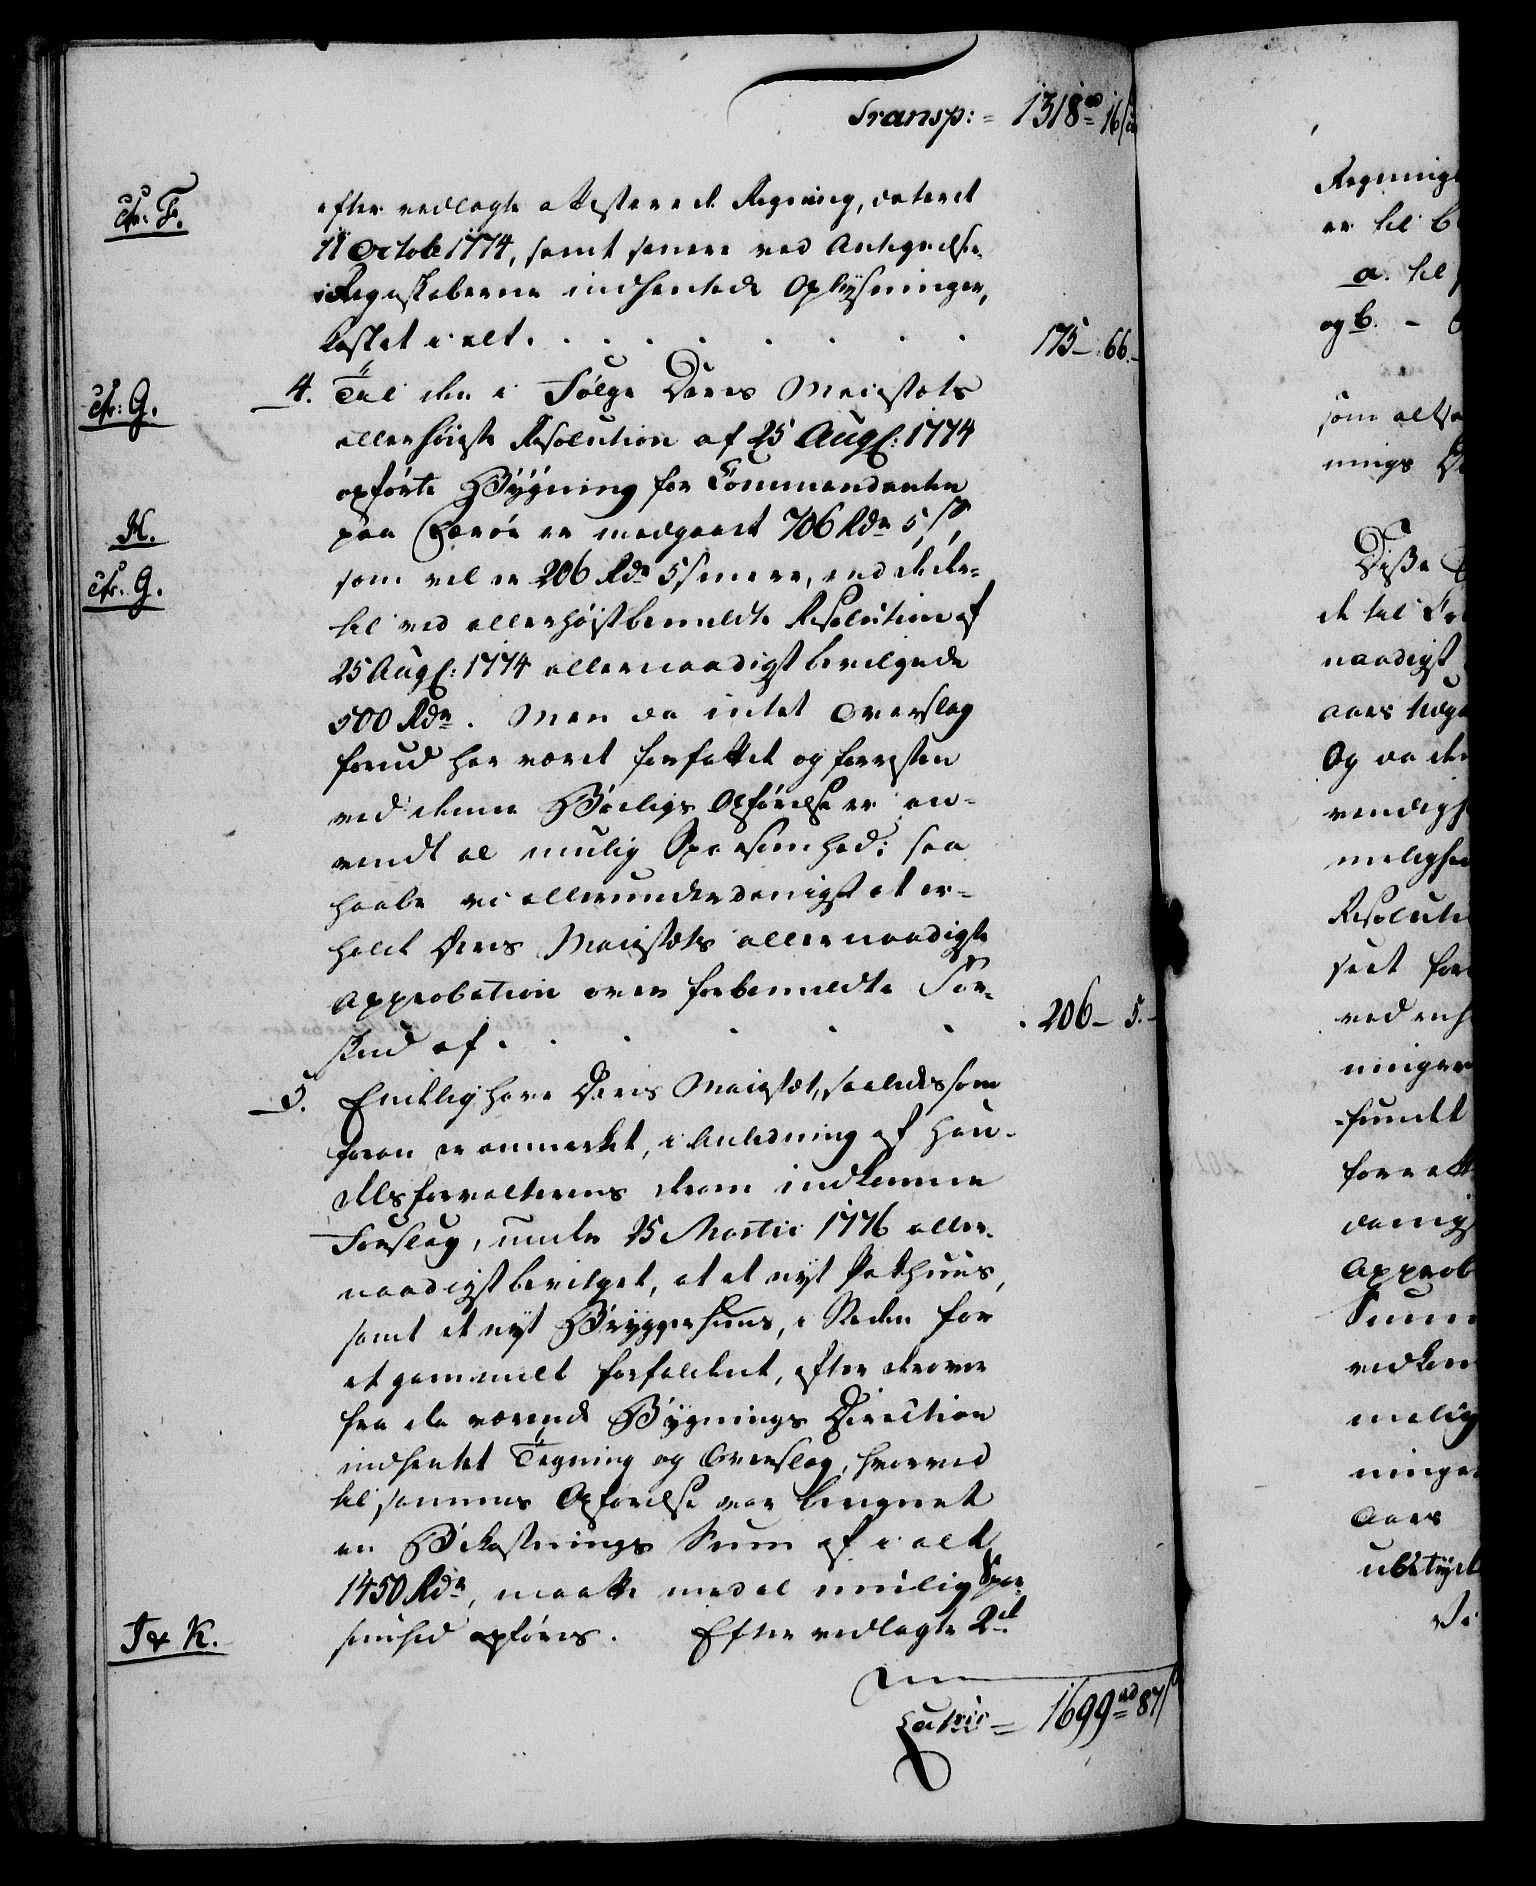 Transp: = 1318 rd 16 s
cfr: F.
efter vedlagte attesterede Regning, dateret
11 Octob 1774, samt senere ved Antegnelser
i Regnskaberne indhentede Oplysninger,
kostet i alt . . . . . . . . 175 - 66. -
cfr: G.
4. Til den i Følge Deres Maiestæts
allerhøieste Resolution af 25 Aug: 1774
opførte Bygning for Commendanten
H.
paa Færöe er medgaaet 706 Rdr 5 s,
cfr. G.
som vel er 206 Rdr 5 s mere, end de der=
til ved allerhøistbemeldte Resolution af
25 Aug: 1774 allernaadigst bevilgede
500 Rdr. Men da intet Overslag
forud har været forfattet og forresten
ved denne Boeligs Opførelse er an=
vendt al mulig Sparsomhed; saa
haabe vi allerunderdanigst at er=
holde Deres Maiestæts allernaadigste
Approbation over forbemeldte For=
skud af . . . . . . 206 - 5. -
5. Endelig have Deres Maiestæt, saaledes som
foran er anmerket, i Anledning af Han=
delsforvalterens derom indkomne
Forslag, under 25 Martii 1776 aller=
naadigst bevilget, at et nyt Pakhuus,
samt et nyt Bryggerhuus, i Steden for
et gammelt forfaldent, efter derover
fra da værende Bygnings Direction
indhentet Tegning og Overslag, hvorved
til sammes Opførelse var beregnet
en Bekostnings Sum af i alt
1450 Rdr, maatte med al muelig Spar=
J & K.
somhed opføres. Efter vedlagte 2de
Latris = 1699 rd 87 s
Regning
er til b
a. til
og b. -
som altsaa
nings
Disse
de til
naadigst
aars Udg
Og da den
vendigh
melighed
Resolut
seet for
ved
ninger
fundet
forrett
danigst
Approb
Summ
vedkom
melig
ninger
Aars
ubetyde
Vi